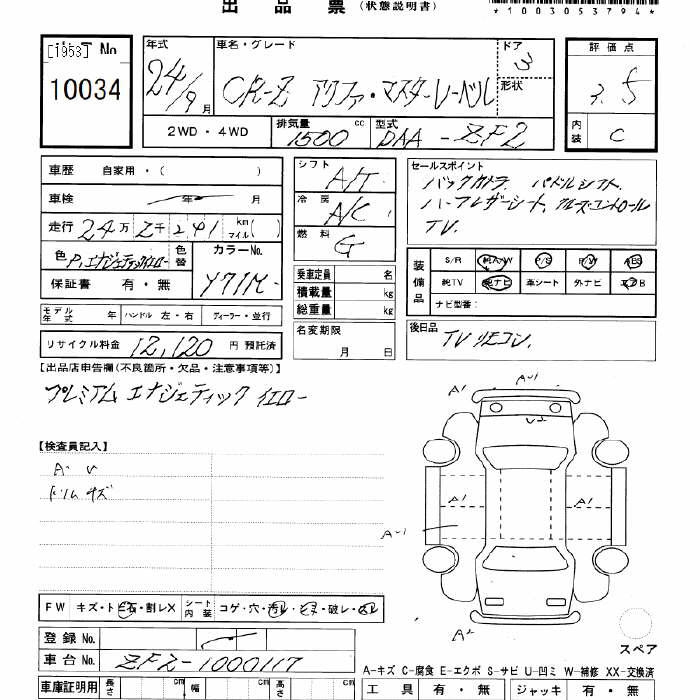 出品票(状態説明書)
*1003053794*
[1953] No
10034
年式 24/9月
車名・グレード CR-Z アルファ・マスターレーベル
ドア 3
形状
評価点 3.5
内装 C
2WD・4WD
排気量 1500 cc
型式 DAA-ZF2
車歴 自家用・( )
車検 年 月
走行 24万2千241 km マイル( )
色 P.エナジェティックイエロー 色替
カラーNo. Y71M-
保証書 有・無
シフト A/T
冷房 A/C
燃料 G
乗車定員 名
積載量 kg
総重量 kg
名変期限
月 日
セールスポイント
バックカメラ. パドルシフト.
ハーフレザーシート. クルーズ・コントロール
TV.
装備品 S/R 純AW P/S P/W ABS
純TV 純ナビ 革シート 外ナビ エアB
ナビ型番:
後日品 TVリモコン.
モデル年式 年 ハンドル 左・右 ディーラー・並行
リサイクル料金 12,120 円 預託済
【出品店申告欄(不良箇所・欠品・注意事項等)】
プレミアム エナジェティック イエロー
【検査員記入】
A・U
ドリムキズ
A1 A-1
U2
A1 A1
A-1
A2
スペア
FW キズ・ト・飛石・割レX シート内装 コゲ・穴・汚レ・スレ・破レ・
登録No.
車台No. ZF2-1000117
A-キズ C-腐食 E-エクボ S-サビ U-凹ミ W-補修 XX-交換済
車庫証明用 長さ cm 幅 cm 高さ cm
工具 有・無 ジャッキ 有・無